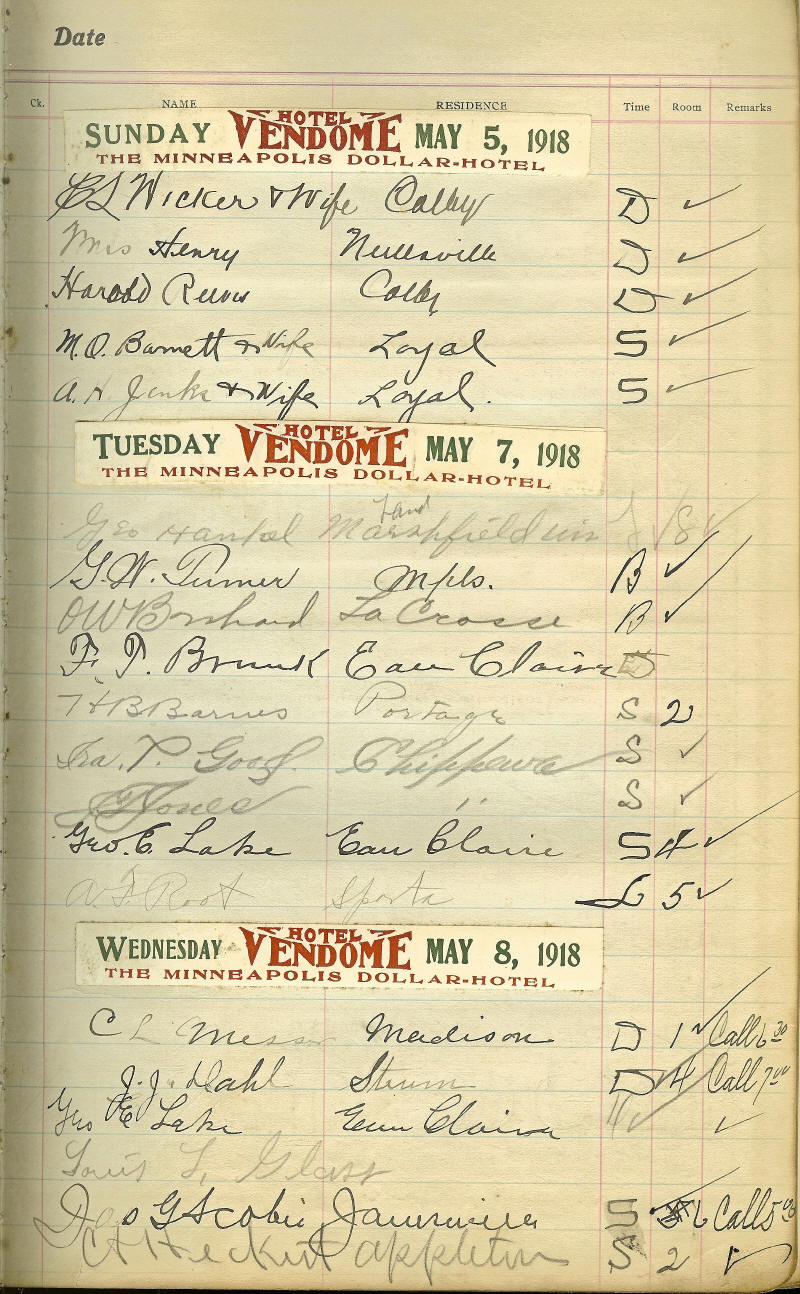 Date
Ck. NAME RESIDENCE Time Room Remarks
SUNDAY HOTEL VENDOME MAY 5, 1918
THE MINNEAPOLIS DOLLAR-HOTEL
C L Wicker & Wife Colby D ✓
Mrs Henry Neillsville D ✓
Harold Colby D ✓
M.O. Barnett & Wife Loyal S ✓
A. H Jenks & Wife Loyal. S ✓
TUESDAY HOTEL VENDOME MAY 7, 1918
THE MINNEAPOLIS DOLLAR-HOTEL
Geo Marshfield 8 ✓
G. W. Turner Mpls. B ✓
OW La Crosse B ✓
F. T. Eau Claire
H B Barnes Portage S 2
Ira. P. Good. Chippewa S ✓
Jones " S ✓
Geo. E. Lake Eau Claire S 4 ✓
A. F. Root Sparta L 5 ✓
WEDNESDAY HOTEL VENDOME MAY 8, 1918
THE MINNEAPOLIS DOLLAR-HOTEL
C L Messer Madison D 1 ✓ Call 6 30
J. J. Dahl Strum D 4 Call 7 00
Geo E. Lake Eau Claire ✓
Louis L. Glass
Jas G Scobie S 6 Call 5
Appleton S 2 ✓